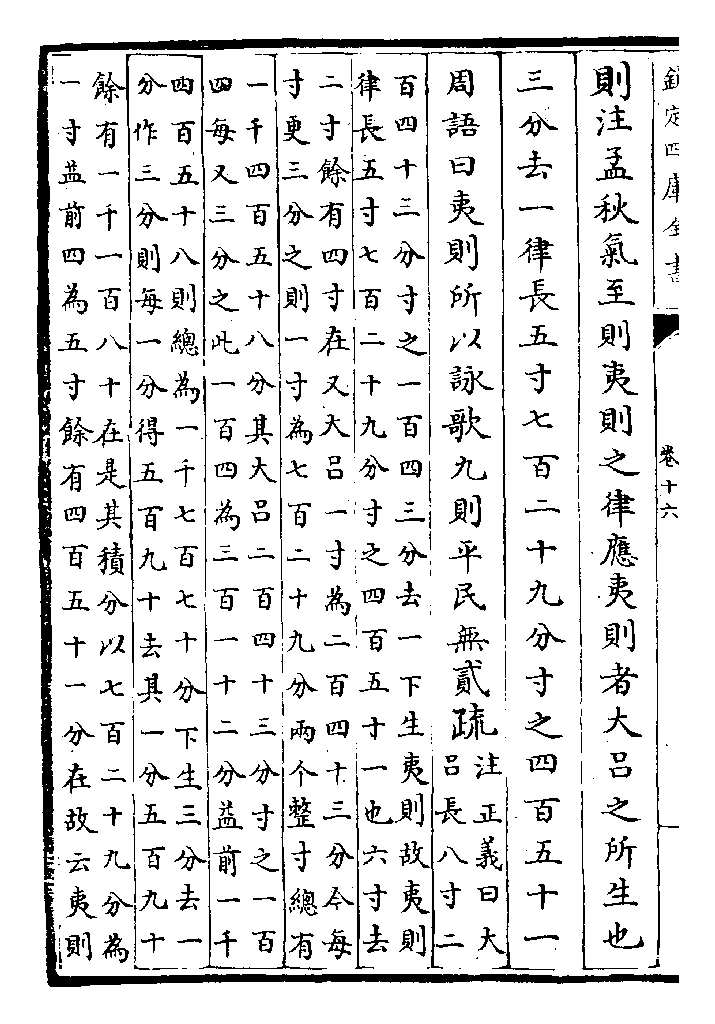 欽定四庫全書
卷十六
則注孟秋氣至則夷則之律應夷則者大呂之所生也
三分去一律長五寸七百二十九分寸之四百五十一
周語曰夷則所以詠歌九則平民無貳疏
注正義曰大
呂長八寸二
百四十三分寸之一百四三分去一下生夷則故夷則
律長五寸七百二十九分寸之四百五寸一也六寸去
二寸餘有四寸在又大呂一寸為二百四十三分今每
寸更三分之則一寸為七百二十九分兩个整寸總有
一千四百五十八分其大呂二百四十三分寸之一百
四每又三分之此一百四為三百一十二分益前一千
四百五十八則總為一千七百七十分下生三分去一
分作三分則每一分得五百九十去其一分五百九十
餘有一千一百八十在是其積分以七百二十九分為
一寸益前四為五寸餘有四百五十一分在故云夷則